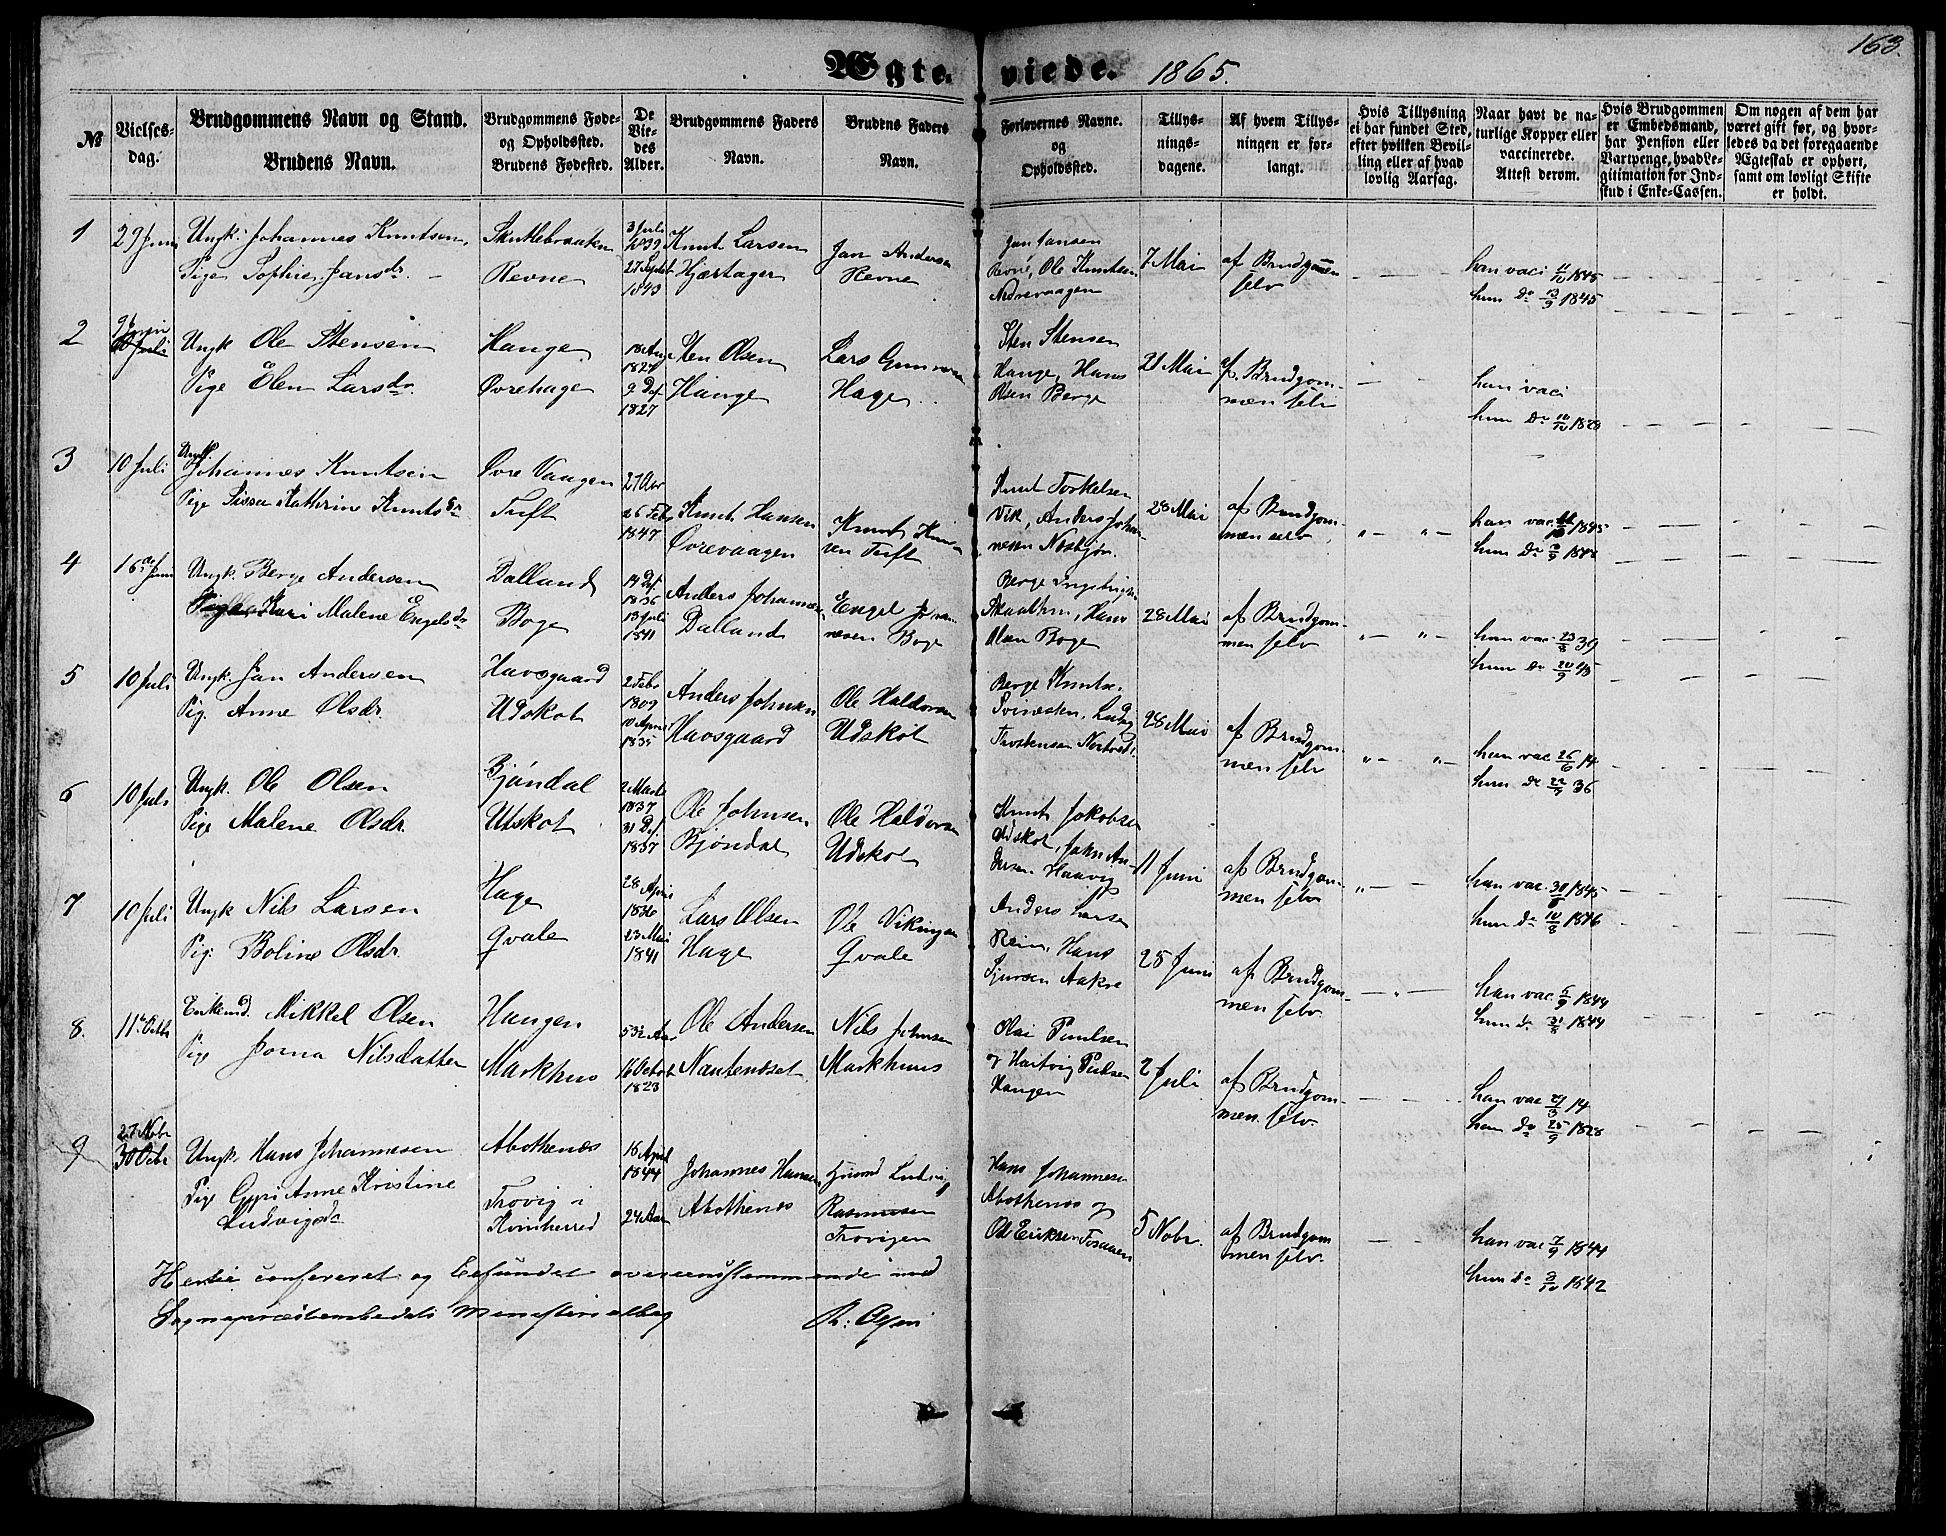 163.
Ægteviede. 1865.
№
Vielsesdag.
Brudgommens Navn og Stand.
Brudens Navn.
Brudgommens Føde- og Opholdssted.
Brudens Fødested.
De Viedes Alder.
Brudgommens Faders Navn.
Brudens Faders Navn.
Forlovernes Navne. og Opholdssted.
Tillysningsdagene.
Af hvem Tillysningen er forlangt.
Hvis Tillysning ei har fundet Sted, efter hvilken Bevilling eller af hvad lovlig Aarsag.
Naar havt de naturlige Kopper eller vaccinerede. Attest derom.
Hvis Brudgommen er Embedsmand, har Pension eller Vartpenge, hvad Legitimation for Indskud i Enke-Cassen.
Om nogen af dem har været gift før, og hvorledes da det foregaaende Ægteskab er ophørt, samt om lovligt Skifte er holdt.
1 29 Juni Ungk: Johannes Knutsen, Skutlebraaken 3 Juli 1839 Knut Larsen Hjertager Jan Andersen Revne
Pige Sophie Jansdr. Revne 27 Septbr 1843
Jan Jansen Revne, Ole Knutsen Nedrevaagen 7 Mai af Brudgommen selv
han vaci 11/10 1845
hun do 13/9 1845
2 9 Juni Ungk Ole Stensen Hauge 18 Aug 1827 Sten Olsen Hauge Lars Hage
Pige Elen Larsdr. Øvrehage 9 1827
Sten Stensen Hauge, Hans Olsen Berge 21 Mai af Brudgommen selv
han vaci
hun do 1829
3 10 Juli Ungk Johannes Knutsen Øvre Vaagen 27 Aar Knut Hansen Øvrevaagen Knut Tuft
Pige Sissa Kathrine Knutsdr Tuft 26 Febr 1847
Knut Torkelsen Vik, Anders Johannesen Nesbjørn 28 Mai af Brudgommen selv
han vac. 1845
hun do
4 16de Juni Ungk. Berge Andersen Dalland 14 1836 Anders Johannesen Dalland Engel Boge
Kari Malene Engelsdr Boge 13 Juli 1841
Berge Hans Olsen Boge 28 Mai af Brudgommen selv
han vac 23/8 39
hun do 20/9 45
5 10 Juli Ungk. Jan Andersen Havsgaard 2 Febr 1809 Anders Johnsen Havsgaard Ole Haldorsen Udskot
Pig. Anne Olsdr. Udskot 10 April 1835
Berge Knuts. 28 Mai af Brudgommen selv
han vac 26/6 14
hun do 22/9 36
6 10 Juli Ungk. Ole Olsen Bjøndal 2 Marts 1837 Ole Johnsen Bjøndal Ole Haldorsen Udskot
Pige Malene Olsdr. Utskot 31 1837
Knut Jakobsen Udskot, John Andersen Haavig 11 Juni af Brudgommen selv
han vac 1845
hun do 10/8 1846
7 10 Juli Ungk Nils Larsen Hage 28 April 1836 Lars Olsen Hage Ole Vikingsen Qvale
Pig. Boline Olsdr. Qvale 23 Mai 1841
Anders Larsen Rein, Hans Sjursen Aakre 25 Juni af Brudgommen selv.
han vac. 5/9 1844
hun do 31/8 1844
8. 11te Octbr Enkemd. Mikkel Olsen Haugen 53½ Aar Ole Andersen Nautenæset Nils Johnsen Markhuus
Pige Jorna Nilsdatter Markhus 16 Octobr 1823
Olai Paulsen og Hartvig Paulsen Haugen 2 Juli af Brudgommen selv.
han vac 29/3 14
hun do 25/9 1828
9 27 Nobr 30 Octbr Ungk. Hans Johannesen Abothenæs 16 April 1844 Johannes Hansen Abothenæs Ludvig Rasmussen Trovigen
Pige Gyri Anne Kristine Ludvigsdr Trovig i Kvinherred 24 Aar
Hans Johannesen Abothenæs og Ole Eriksen 5 Nobr. af Brudgommen selv.
han vac 7/9 1844
hun do 3/10 1842
Hertil confereret og befundet overensstemmende med
Sognepræstembedets Ministerialbog